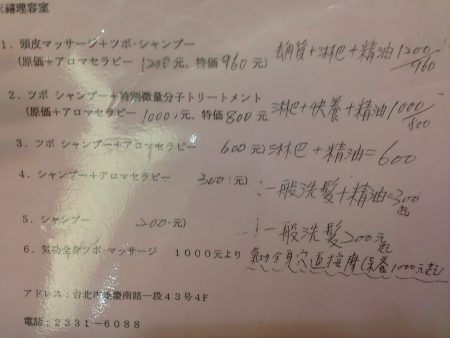 禧理容室
1．頭皮マッサージ+ツボ・シャンプー
(原価+アロマセラピー 1200元、特価960元)
角質+淋巴+精油1200/960
2．ツボ シャンプー+特別微量分子トリートメント
(原価+アロマセラピー 1000元、特価800元)
淋巴+快養+精油1000/800
3．ツボ シャンプー+アロマセラピー 600元)
淋巴+精油=600
4．シャンプー+アロマセラピー 300元)
一般洗髮+精油=300起
5．シャンプー 200元)
一般洗髮200元起
6．気功全身ツボ・マッサージ 1000元より
氣功全身穴道按摩保養1000元起
アドレス：台北市重慶南路一段43号4F
電話：2331-6088